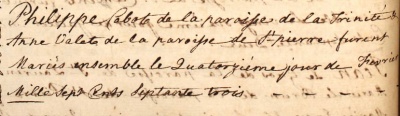 Philippe Cabot de la paroisse de la Trinité &
Anne Valets de la paroisse de St pierre furent
Mariés ensemble le Quatorziéme jour de Fevrier
Mille Sept Cents Septante trois